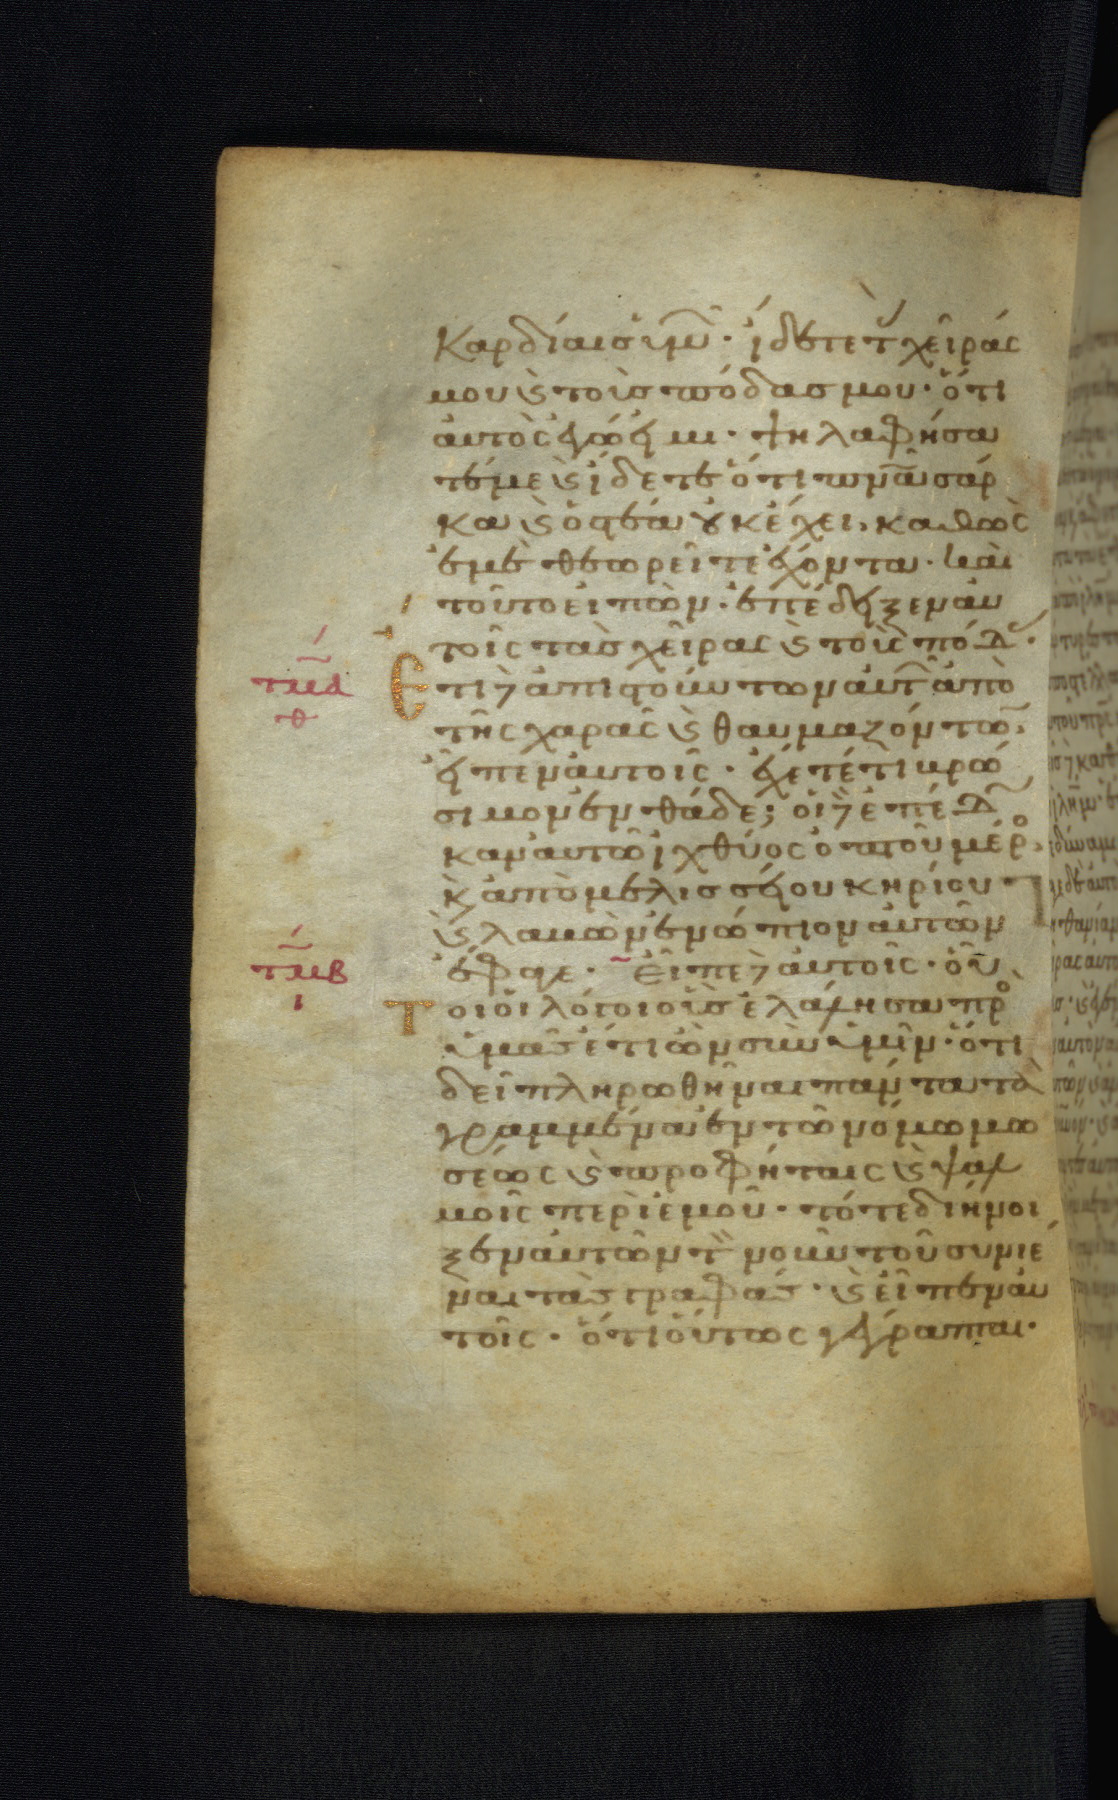 καρδίαις ὑμῶν· ἴδετε τ χεῖράς
μου ϗ τοὺς πόδας μου· ὅτι
αὐτὸς ἐγώ εἰμι· ψηλαφήσα
τέ με ϗ ἴδετε ὅτι πνᾶ σάρ
κα ϗ ὀστέα οὐκ ἔχει, καθὼς
ἐμὲ θεωρεῖτε ἔχοντα· καὶ
τοῦτο εἰπὼν· ἐπέδειξεν αὐ
τοῖς τὰς χεῖρας ϗ τοὺς πόδ·
τμα
θ
Ἔτι δ ἀπιστούντων αὐτ ἀπὸ
τῆς χαρᾶς ϗ θαυμαζόντω,
εἶπεν αὐτοῖς· ἔχετέ τι βρώ
σιμον ἐνθάδε; οἱ δ ἐπέδω
καν αὐτῶ ἰχθύος ὀπτοῦ μέρο,
ϗ ἀπὸ μελισσείου κηρίου
ϗ λαβὼν ἐνώπιον αὐτῶν
τμβ
ι
ἔφαγε· Εἶπε δ αὐτοῖς· οὗ
τοι οἱ λόγοι οὓς ἐλάλησα πρὸ
ὑμᾶς ἔτι ὢν σὺν ὑμῖν· ὅτι
δεῖ πληρωθῆναι πάντα τὰ
γεγραμμένα ἐν τῶ νόμω μω
σέως ϗ προφήταις ϗ ψαλ
μοῖς περὶ ἐμοῦ· τότε διήνοι
ξεν αὐτῶν τ νοῦν τοῦ συνιέ
ναι τὰς γραφάς· ϗ εἶπεν αὐ
τοῖς· ὅτι οὕτως γέγραπται·